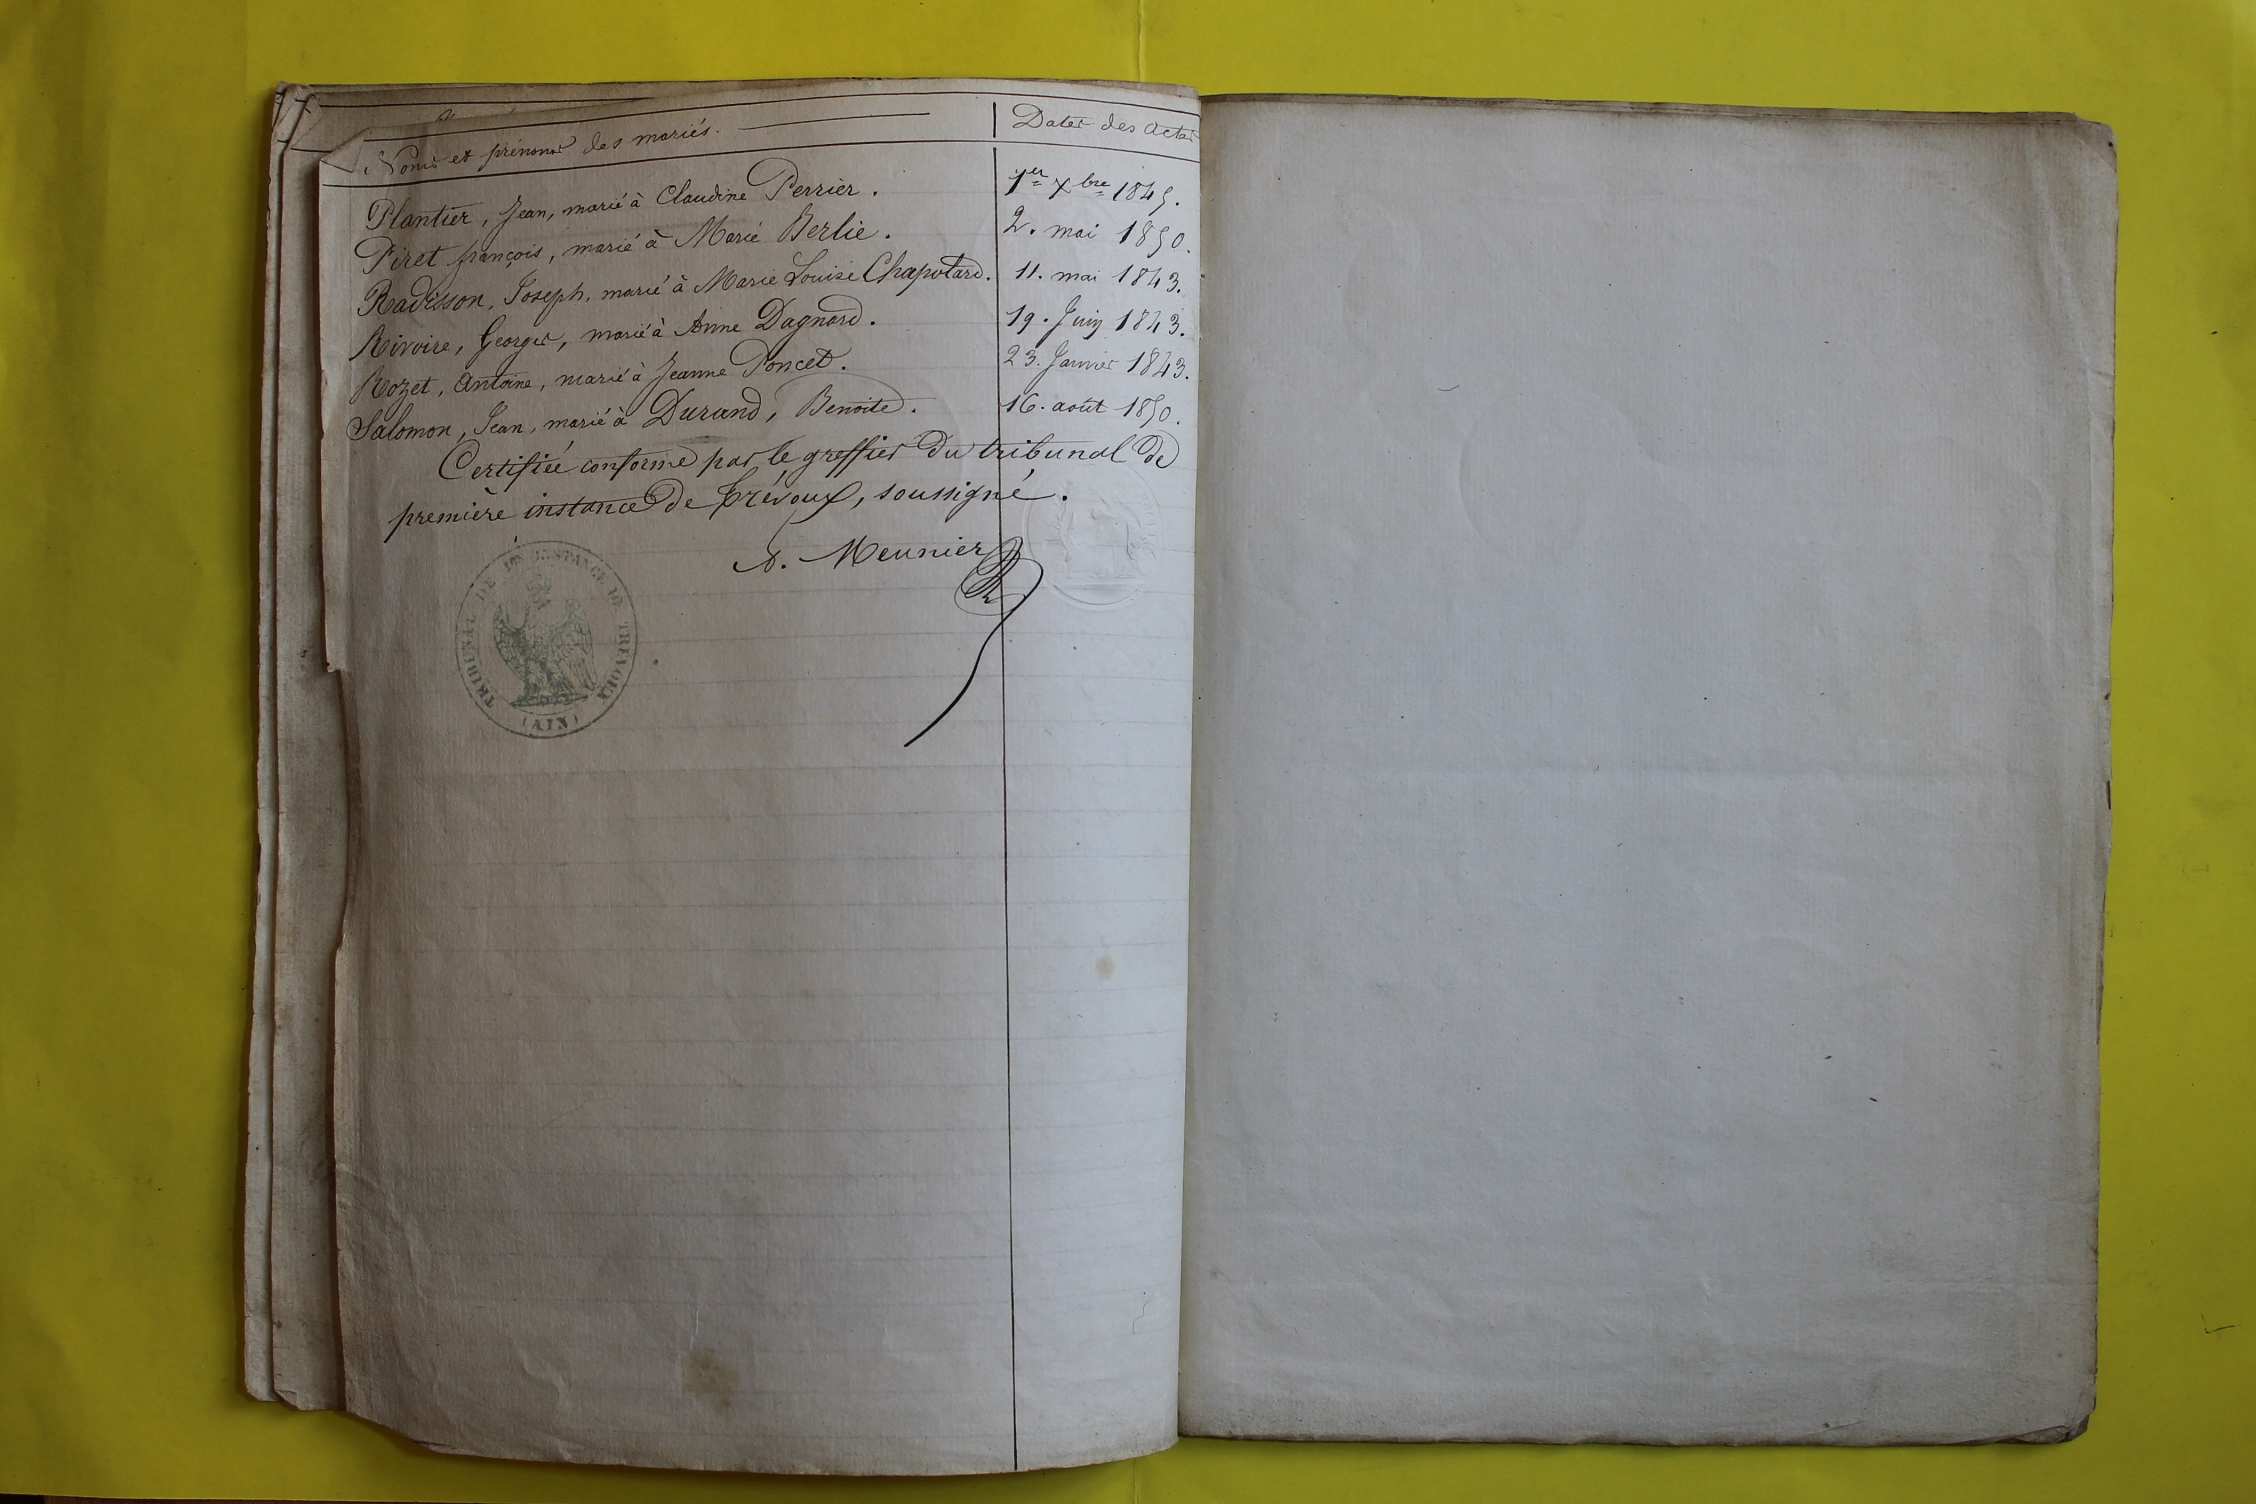 Noms et prénoms des mariés. Dates des actes
Plantier, Jean, marié à Claudine Perrier. 1er Xbre 1845.
Piret françois, marié à Marie Berlie. 2. mai 1850.
Radisson, Joseph, marié à Marie Louise Chapotard. 11. mai 1843.
Rivoire, Georges, marié à Anne Dagnard. 19. Juin 1843.
Rozet, Antoine, marié à Jeanne Poncet. 23. Janvier 1843.
Salomon, Jean, marié à Durand, Benoite. 16. août 1850.
Certifiée conforme par le greffier du tribunal de
première instance de Trévoux, soussigné.
A. Meunier
TRIBUNAL DE 1RE INSTANCE DE TREVOUX
(AIN)